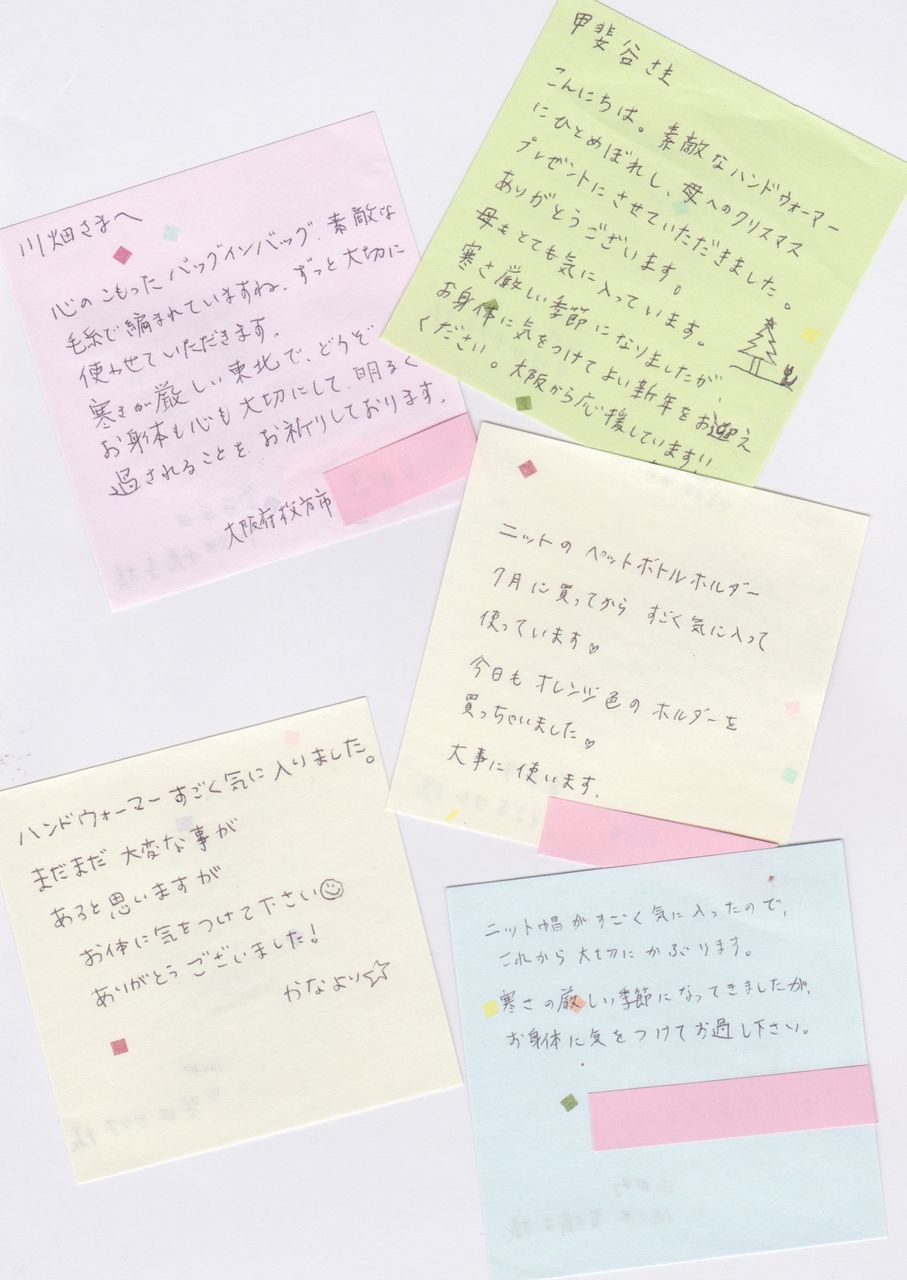 甲斐谷さま
こんにちは。素敵なハンドウォーマー
にひとめぼれし、母へのクリスマス
プレゼントにさせていただきました。
ありがとうございます。
母もとても気に入っています。
寒さ厳しい季節になりましたが、
お身体に気をつけてよい新年をお迎え
ください。大阪から応援しています!!
川畑さまへ
心のこもったバッグインバッグ、素敵な
毛糸で編まれていますね。ずっと大切に
使わせていただきます。
寒さが厳しい東北で、どうぞ
お身体も心も大切にして、明るく
過されることを、お祈りしております。
大阪府枚方市
ニットの ペットボトルホルダー
7月に買ってから すごく気に入って
使っています♡
今日も オレンジ色の ホルダーを
買っちゃいました♡
大事に 使います。
ハンドウォーマーすごく気に入りました。
まだまだ 大変な事が
あると思いますが
お体に気をつけて下さい☺
ありがとう ございました!
かなより☆
ニット帽がすごく気に入ったので、
これから大切にかぶります。
寒さの厳しい季節になってきましたが、
お身体に気をつけてお過し下さい。